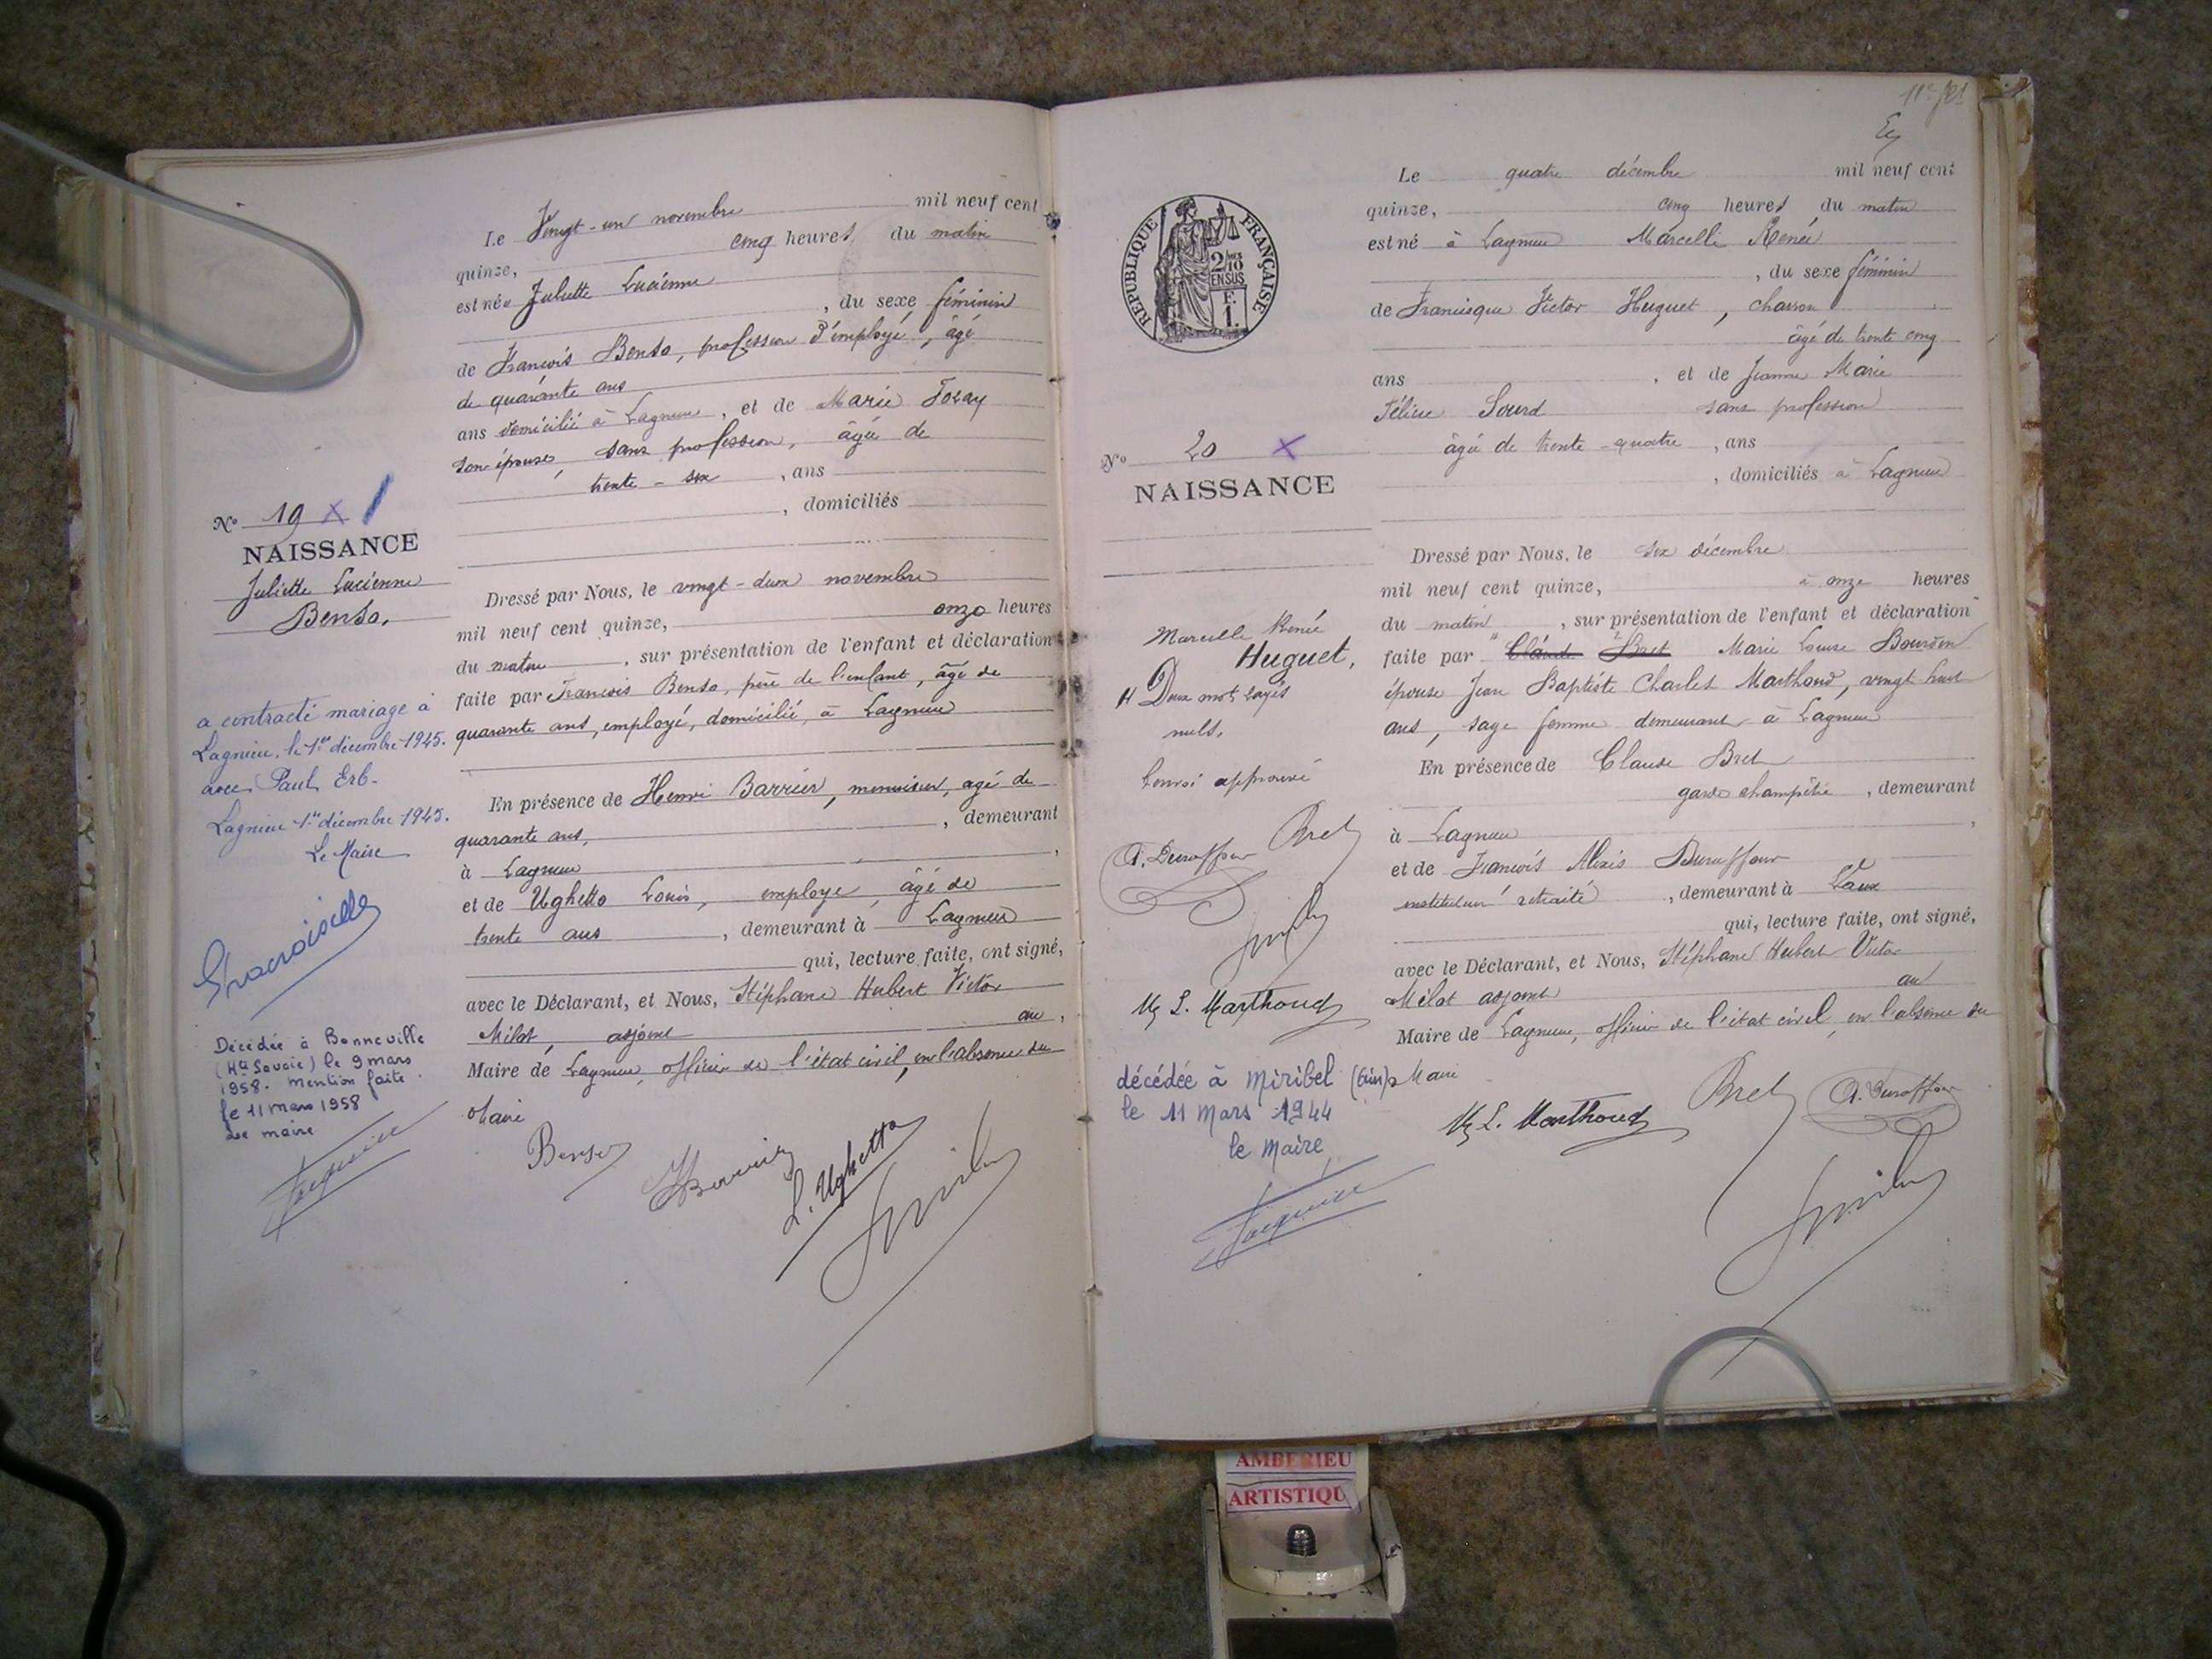 Le Vingt-un novembre mil neuf cent
quinze, cinq heures du matin
est née Juliette Lucienne
, du sexe féminin
de François Benso, profession d'employé, âgé
de quarante ans
ans domicilié à Lagnieu, et de Marie
son épouse, sans profession, âgée de
trente-six, ans
, domiciliés
Nº 19 X
NAISSANCE
Juliette Lucienne
Benso.
Dressé par Nous, le vingt-deux novembre
mil neuf cent quinze, onze heures
du matin, sur présentation de l'enfant et déclaration
faite par François Benso, père de l'enfant, âgé de
quarante ans, employé, domicilié à Lagnieu
En présence de Henri Barrier, menuisier, agé de
quarante ans, , demeurant
à Lagnieu ,
et de Ughetto Louis, employe, âgé de
trente ans, demeurant à Lagnieu
qui, lecture faite, ont signé,
avec le Déclarant, et Nous, Stéphane Hubert Victor
Milot, adjoint au
Maire de Lagnieu, officier de l'état civil, en l'absence du
Maire
a contracté mariage à
Lagnieu, le 1er décembre 1945.
avec Paul Erb.
Lagnieu 1er décembre 1945.
Le Maire
Décédée à Bonneville
(Hte Savoie) le 9 mars
1958. Mention faite
le 11 mars 1958
Le maire
Benso
HBarrier
L. Ughetto
11e
RÉPUBLIQUE FRANÇAISE
2/10 EN SUS
F. 1.
Le quatre décembre mil neuf cent
quinze, cinq heures du matin
est né à Lagnieu Marcelle Renée
, du sexe féminin
de Francisque Victor Huguet, charron
âgé de trente cinq
ans , et de Jeanne Marie
Féline Sourd sans profession
âgée de trente-quatre, ans
, domiciliés à Lagnieu
Nº 20 X
NAISSANCE
Marcelle Renée
Huguet,
Deux mots rayés
nuls.
approuvé
Bret
A. Duraffour
M. L. Marthoud
décédée à Miribel (Ain)
le 11 Mars 1944
le Maire
Dressé par Nous, le six décembre
mil neuf cent quinze, à onze heures
du matin, sur présentation de l'enfant et déclaration
faite par Claude Bret Marie Louise Bourdin
épouse Jean Baptiste Charles Marthoud, vingt huit
ans, sage femme demeurant à Lagnieu
En présence de Claude Bret
garde champêtre, demeurant
à Lagnieu ,
et de François Alexis Duraffour
instituteur retraité, demeurant à Vaux
qui, lecture faite, ont signé,
avec le Déclarant, et Nous, Stéphane Hubert Victor
Milot adjoint au
Maire de Lagnieu, officier de l'état civil, en l'absence du
Maire
M. L. Marthoud
Bret
A. Duraffour
AMBERIEU
ARTISTIQU